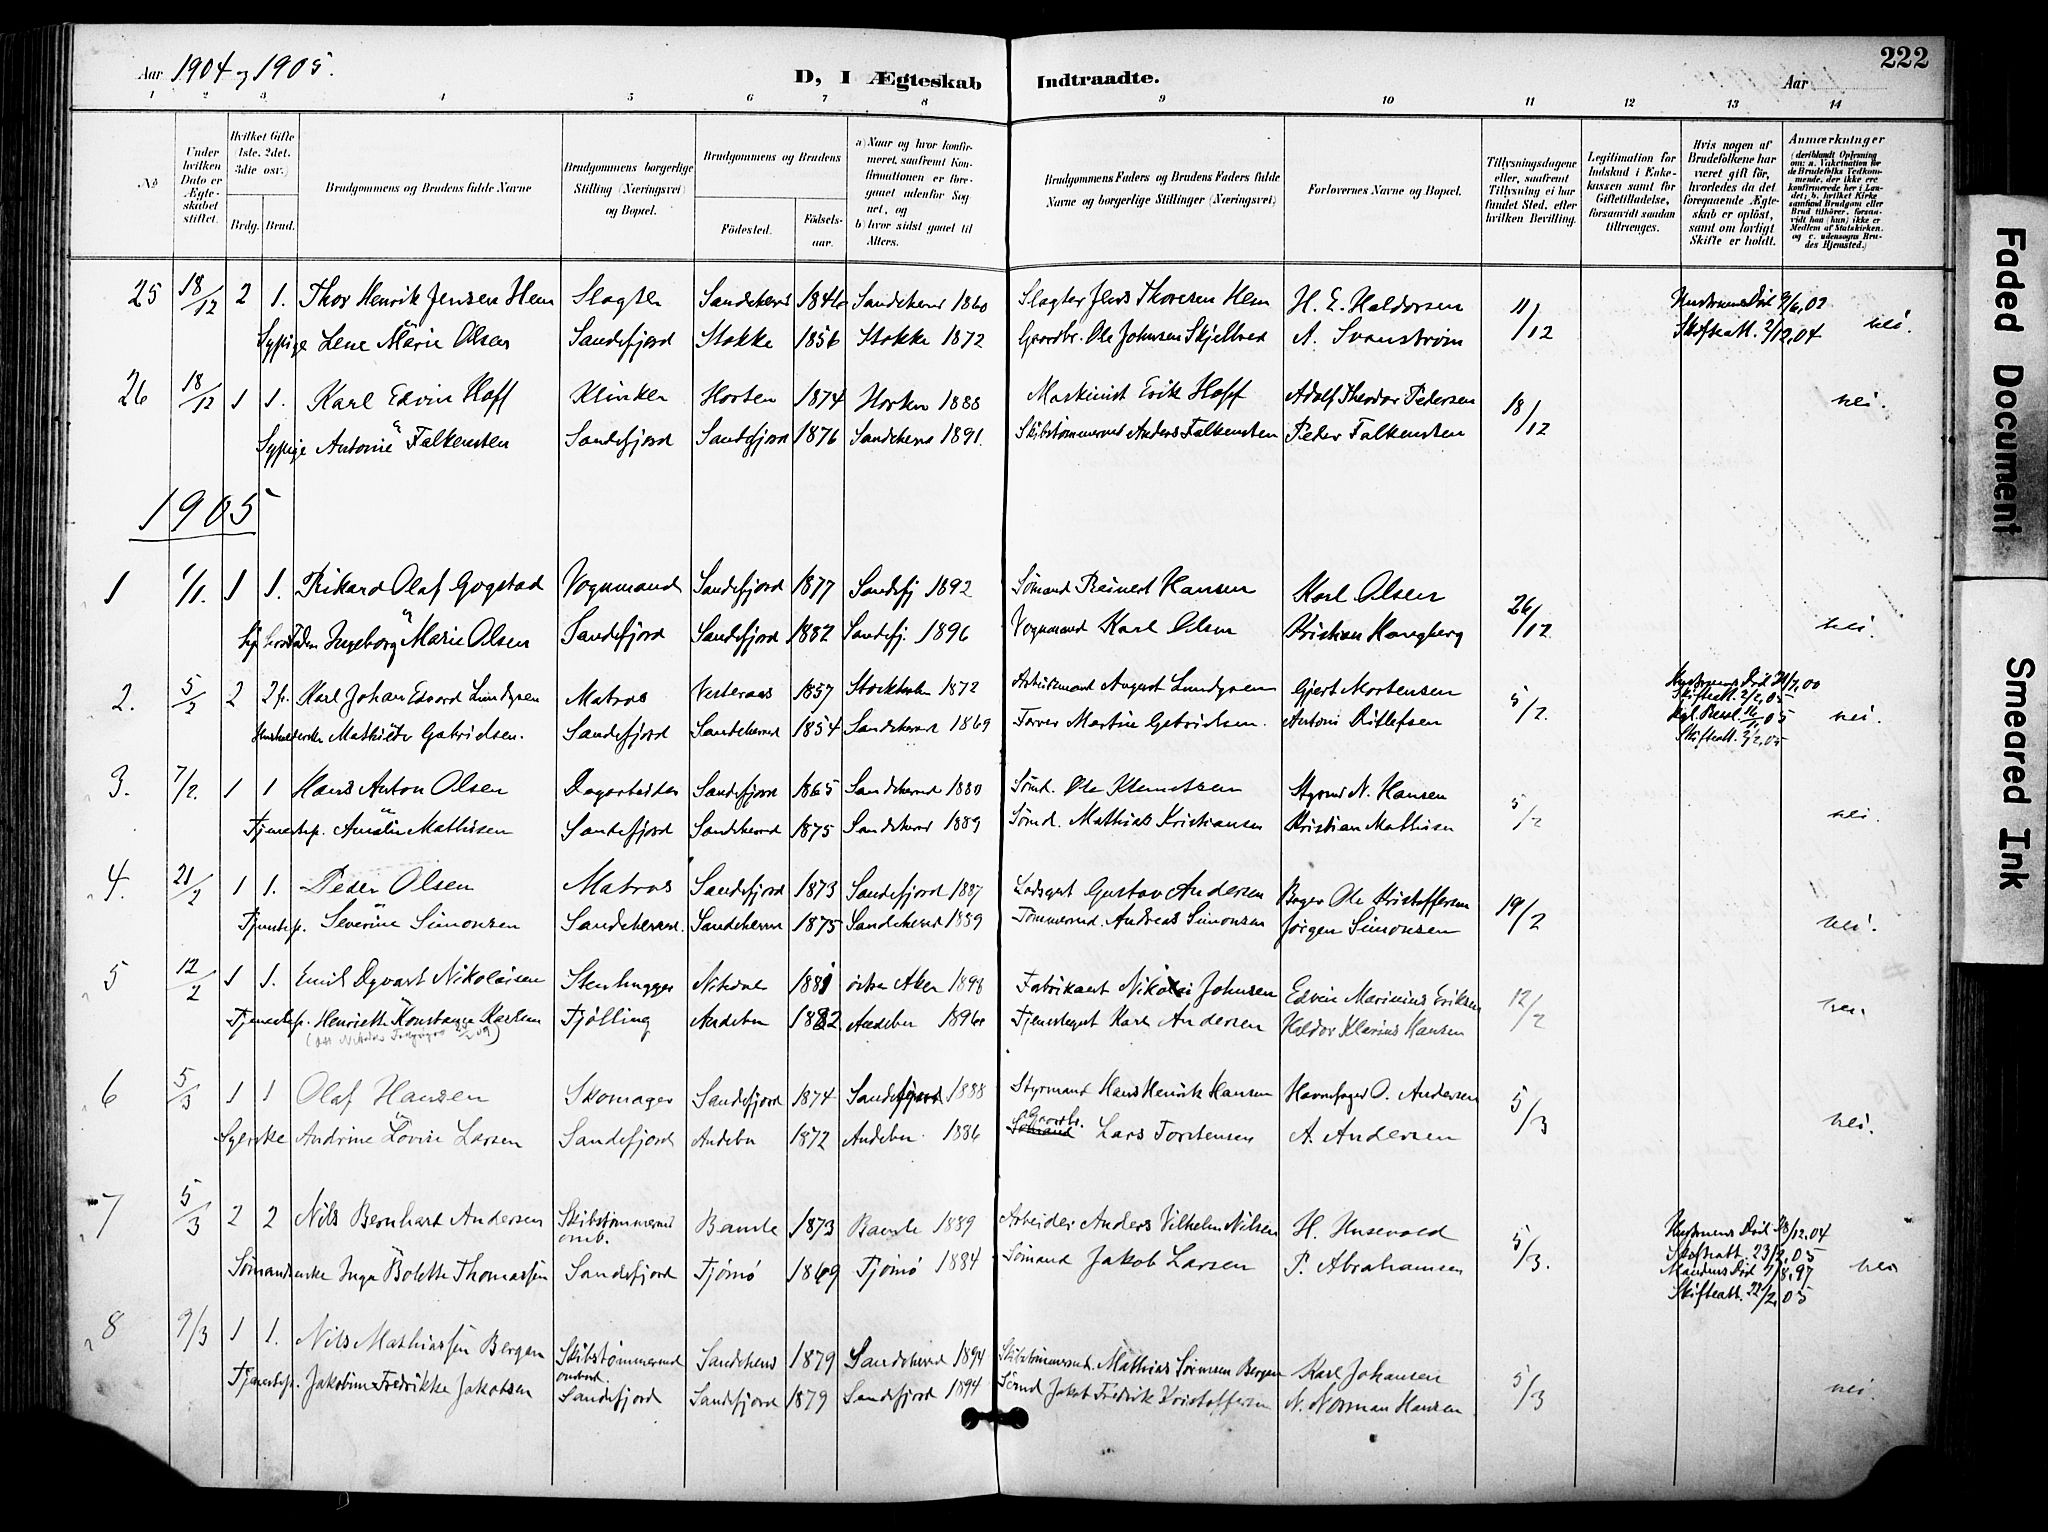 222
Aar 1904 og 1905.
D, I Ægteskab Indtraadte.
Aar
1 2 3. 4 5 6 7 8 9 10 11 12 13 14
No
Under hvilken Dato er Ægteskabet stiftet.
Hvilket Gifte 1ste, 2det, 3die osv.)
Brdg. Brud.
Brudgommens og Brudens fulde Navne
Brudgommens borgerlige Stilling (Næringsvei) og Bopæl.
Brudgommens og Brudens
Fødested. Fødselsaar.
a) Naar og hvor konfirmeret, saafremt Konfirmationen er foregaaet udenfor Sognet, og
b) hvor sidst gaaet til Alters.
Brudgommens Faders og Brudens Faders fulde Navne og borgerlige Stillinger (Næringsvei)
Forlovernes Navne og Bopæl.
Tillysningsdagene eller, saafremt Tillysning ei har fundet Sted, efter hvilken Bevilling.
Legitimation for Indskud i Enkekassen samt for Giftetilladelse, forsaavidt saadan tiltrænges.
Hvis nogen af Brudefolkene har været gift før, hvorledes da det foregaaende Ægteskab er opløst, samt om lovligt Skifte er holdt.
Anmærkninger
25 18/12 2 1. Thor Henrik Jensen Hem Slagter Sandeherred 1846 Sandeherred 1860 Slagter Jens Thoresen Hem H. E. Haldorsen 11/12 Hustruens Död 9/6.02
Sypige Lene Marie Olsen Sandefjord Stokke 1856 Stokke 1872 Gaardbr. Ole Johnsen Skjelbred A. Svanström Skifteatt. 2/12.04 nei.
26 18/12 1 1. Karl Edvin Hoff Klinker Horten 1874 Horten 1888 Maskinist Erik Hoff Adolf Theodor Pedersen 18/12 nei.
Sypige Antonie Falkensten Sandefjord Sandefjord 1876 Sandeherred 1891. Skibstømmermd Anders Falkensten Peder Falkensten
1905
1 1/1. 1 1. Rikard Olaf Gogstad Vognmand Sandefjord 1877 Sandefj 1892 Sömand Reinert Hansen Karl Olsen 26/12
Ingeborg Marie Olsen Sandefjord Sandefjord 1882 Sandefj. 1896 Vognmand Karl Olsen Kristian Haugberg nei.
2. 5/2 2 2 Karl Johan Edvard Lundgren Matros Vesteraas 1857 Stockholm 1872 Arbeidsmand August Lundgren Gjert Mortensen 5/2. Hustruens Död 24/7.00
Skifteatt. 2/2.05
Mathilde Gabrielsen. Sandefjord Sandeherred 1854 Sandeherred 1869 Farver Martin Gabrielsen. Antoni Ditlefsen Kgl. Besl. 16/1.05 nei.
Skifteatt. 2/2.05
3. 7/2. 1 1 Hans Anton Olsen Dagarbeider Sandefjord 1865 Sandeherred 1880 Sömd. Ole Klemetsen Styrmd N. Hansen 5/2
Tjenestep. Amalie Mathisen Sandefjord Sandeherred 1875 Sandeherred 1889 Sömd. Mathias Kristiansen Kristian Mathisen nei.
4. 21/2 1 1. Peder Olsen Matros Sandefjord 1873 Sandefjord 1887 Gustav Andersen Bager Ole Kristoffersen 19/2
Tjenestep. Severine Simonsen Sandeherred. Sandeherred 1875 Sandeherred 1889 Tömmermd. Andreas Simonsen Jørgen Simonsen nei.
5 12/2 1 1. Emil Dyvart Nikolaisen Stenhugger Nitedal 1881 östre Aker 1898 Fabrikant Nikolai Johnsen Edvin Marinius Eriksen 12/2
Tjenestep. Henriette Konstanse Karlsen Tjölling Andebu 1882 Andebu 1896 Karl Andersen Haldor Klarius Hansen nei.
6 5/3 1 1 Olaf Hansen Skomager Sandefjord 1874 Sandefjord 1888 Styrmand Hans Henrik Hansen Havnefoged O. Andersen 5/3
Syerske Andrine Lovise Larsen Sandefjord Andebu 1872 Andebu. 1886 Gaardbr. Lars Torstensen A. Andersen nei
7 5/3 2 2 Nils Bernhart Andersen Skibstömmermd omb. Bamle 1873 Bamle 1889 Arbeider Anders Vilhelm Nilsen H. Husevold 5/3. Hustruens Död 28/12.04
Skifteatt. 23/2.05
Sömandsenke Inga Bolette Thomassen Sandefjord Tjömö 1869 Tjömö 1884 Sömand Jakob Larsen P. Abrahamsen Mandens Död 7/8.97 nei
Skifteatt. 22/2.05
8 9/3 1 1. Nils Mathiassen Bergan Skibstömmermd ombord. Sandeherred 1879 Sandeherred 1894 Skibstömmermd. Mathias Sörensen Bergan Karl Johansen 5/3
Tjenestep. Jakobine Fredrikke Jakobsen Sandefjord Sandefjord 1879 Sandefjord 1894 Sömd Jakob Fredrik Kristoffersen N. Norman Hansen nei.
Faded Document
Smeared Ink